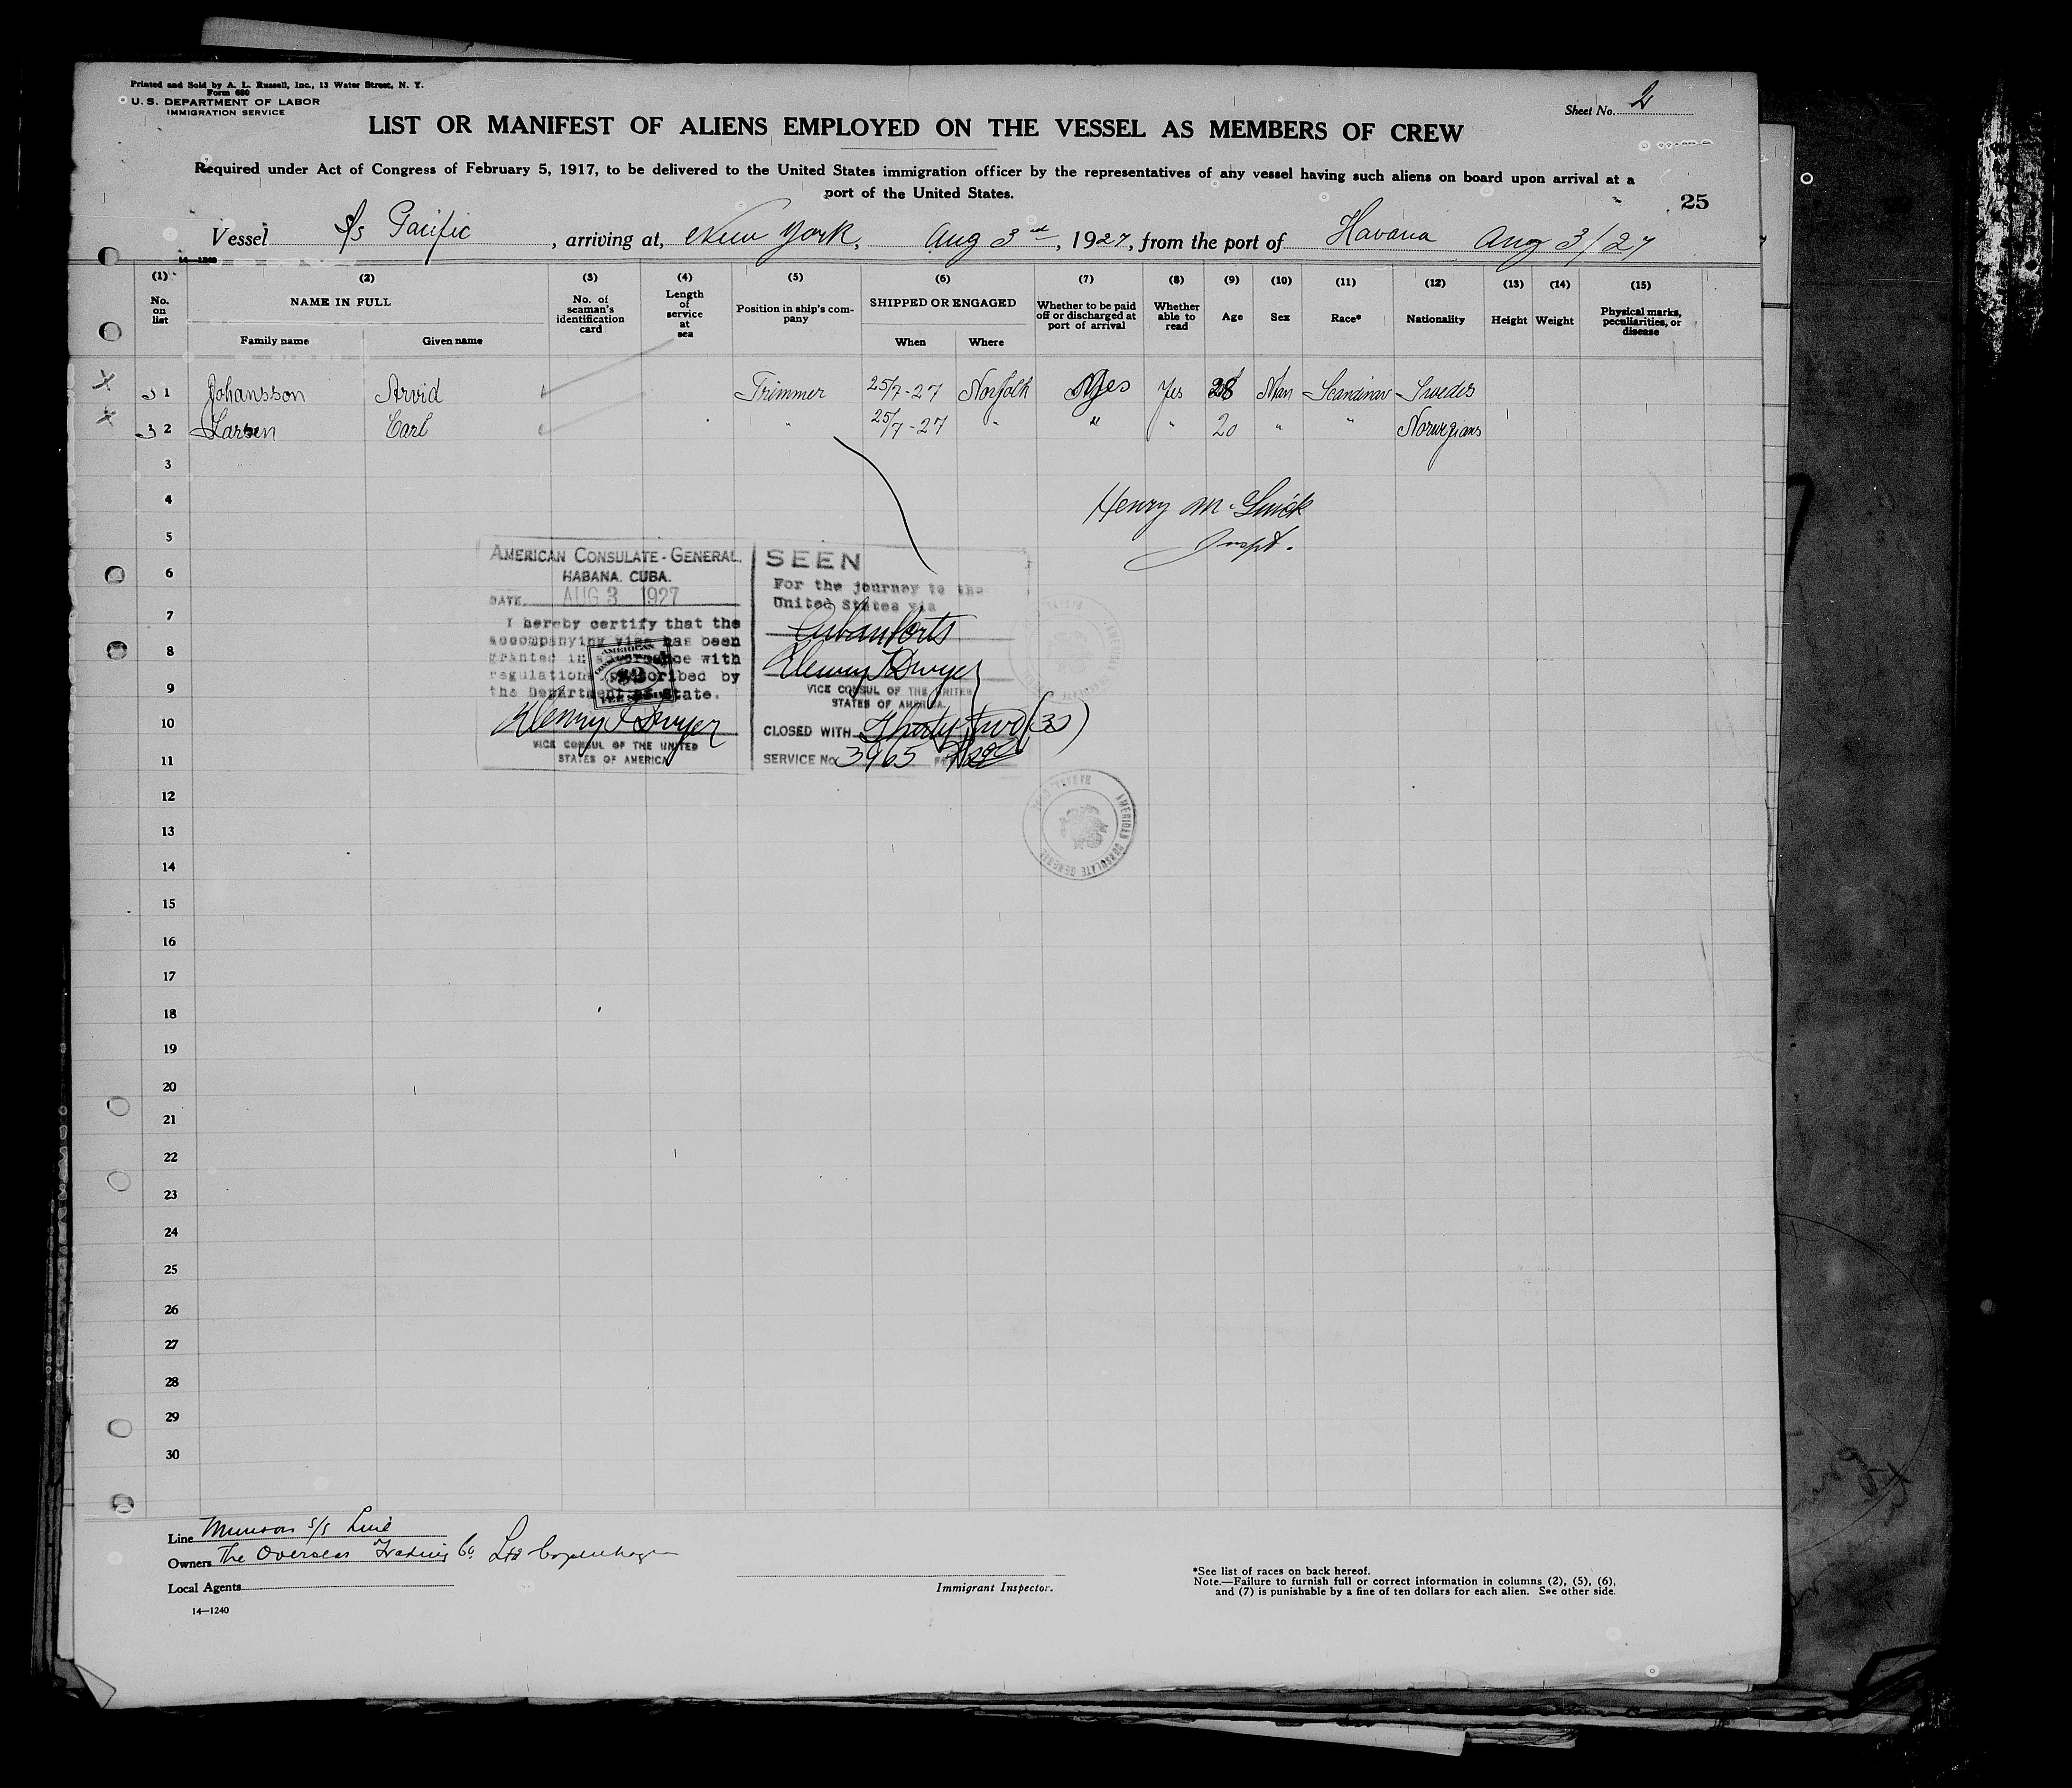 Printed and Sold by A. L. Russell, Inc., 13 Water Street, N. Y.
Form 680
U. S. DEPARTMENT OF LABOR
IMMIGRATION SERVICE
Sheet No. 2
LIST OR MANIFEST OF ALIENS EMPLOYED ON THE VESSEL AS MEMBERS OF CREW
Required under Act of Congress of February 5, 1917, to be delivered to the United States immigration officer by the representatives of any vessel having such aliens on board upon arrival at a
port of the United States.
25
Vessel S/s Pacific, arriving at, New York, Aug 3rd, 1927, from the port of Havana Aug 3/27
14—1240
(1) (2) (3) (4) (5) (6) (7) (8) (9) (10) (11) (12) (13) (14) (15)
No. on list
NAME IN FULL
Family name Given name
No. of seaman's identification card
Length of service at sea
Position in ship's company
SHIPPED OR ENGAGED
When Where
Whether to be paid off or discharged at port of arrival
Whether able to read
Age
Sex
Race*
Nationality
Height
Weight
Physical marks, peculiarities, or disease
1 Johansson Arvid Trimmer 25/7-27 Norfolk Yes Yes 28 Man Scandinav Swedes
2 Larsen Carl " 25/7-27 " " " 20 " " Norwegians
3
4
Henry Mc
5
Inspt.
6
7
8
9
10
11
AMERICAN CONSULATE-GENERAL.
HABANA. CUBA.
DATE AUG 3 1927
I hereby certify that the
accompanying visa has been
granted in accordance with
regulations prescribed by
the Department of State.
AMERICAN
$2
FEE STAMP
Henry T Dwyer
VICE CONSUL OF THE UNITED
STATES OF AMERICA
SEEN
For the journey to the
United States via
Cuban Ports
Henry T Dwyer
VICE CONSUL OF THE UNITED
STATES OF AMERICA.
CLOSED WITH Thirty two (32)
SERVICE No. 3965
AMERICAN CONSULATE GENERAL
12
13
14
15
16
17
18
19
20
21
22
23
24
25
26
27
28
29
30
Line Munson S/S Line
Owners The Overseas Trading Co. Ltd Copenhagen
Local Agents
14—1240
Immigrant Inspector.
*See list of races on back hereof.
Note.—Failure to furnish full or correct information in columns (2), (5), (6),
and (7) is punishable by a fine of ten dollars for each alien. See other side.